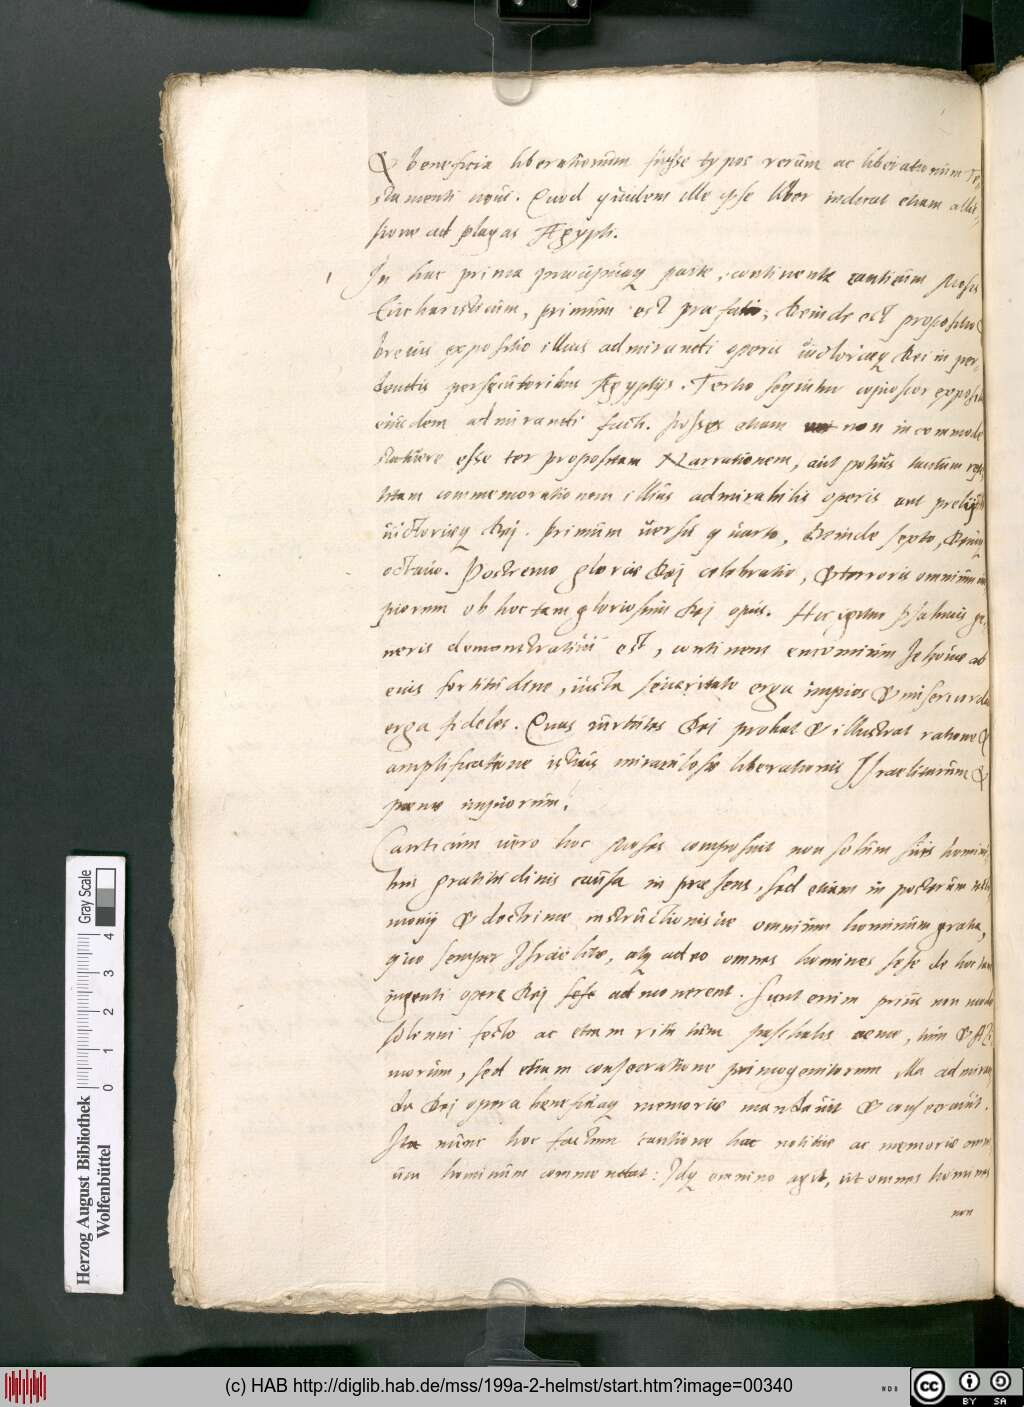 & beneficia liberationum fuisse typos rerum ac liberationum Te-
stamenti noui. Quod quidem ille ipse liber indicat etiam allu-
sione ad plagas Ægypti.
1 In hac prima praecipuaq parte, continente canticum Mosis
Eucharisticum, primum est praefatio, Deinde est propositio &
breuis expositio illius admirandi operis uictoriaeq Dei in per-
dendis persecutoribus Ægyptijs. Tertio sequitur copiosior expositio
eiusdem admirandi facti. Posses etiam non incommode
statuere esse ter propositam Narrationem, aut potius tantum repe-
titam commemorationem illius admirabilis operis aut
uictoriaeq Dei. Primum uersu quarto, Deinde sexto, Deniq
octauo. Postremo gloriae Dei celebratio, & terroris omnium im-
piorum ob hoc tam gloriosum Dei opus. Hic igitur Psalmus ge-
neris demonstratiui est, continens encomium Jehouae ab
eius fortitudine, iusta seueritate erga impios & misericordia
erga fideles. Quas uirtutes Dei probat & illustrat ratione &
amplificatione istius miraculosae liberationis Israelitarum &
poenae impiorum.
Canticum uero hoc Moses composuit non solum suis homini-
bus gratitudinis causa in praesens, sed etiam in posterum testi-
monij & doctrinae instructionisue omnium hominum gratia,
quo semper Israelitae, atq adeo omnes homines sese de hoc tam
ingenti opere Dei sese admonerent. Sunt enim prius non modo
solenni festo ac etiam ritu tum paschalis cenae, tum & Azi-
morum, sed etiam consecratione primogenitorum illa admiran-
da Dei opera beneficiaq memoriae mandauit & consecrauit.
Ita nunc hoc factum cantione hac notitiae ac memoriae omni-
um hominum commendat: Idq omnino agit, ut omnes homines
non
Herzog August Bibliothek
Wolfenbüttel
Gray Scale
0 1 2 3 4
(c) HAB http://diglib.hab.de/mss/199a-2-helmst/start.htm?image=00340
cc BY SA